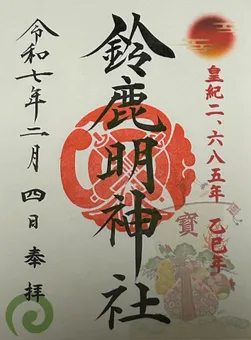 皇紀二、六八五年 乙巳年
鈴鹿明神社
令和七年二月四日 奉拝
寶